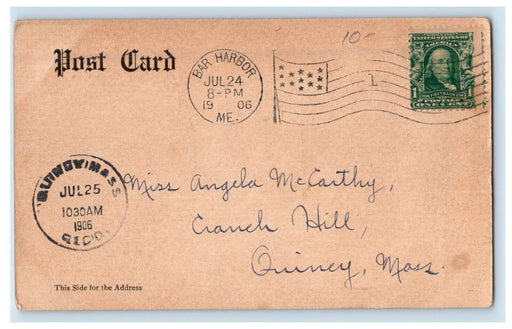 10-
Post Card
BAR HARBOR
JUL 24
8-PM
19 06
ME.
1
UNITED STATES OF
AMERICA
1 1
POSTAGE
ONE CENT
QUINCY, MASS
JUL 25
1030AM
1906
REC'D.
Miss Angela McCarthy,
Cranch Hill,
Quincy, Mass.
This Side for the Address